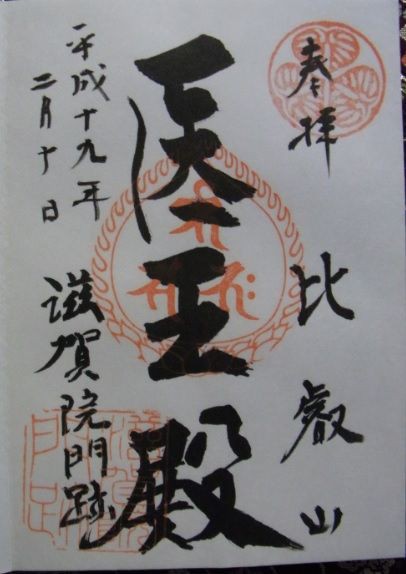 奉拝
比叡山
医王殿
平成十九年
二月十日
滋賀院門跡